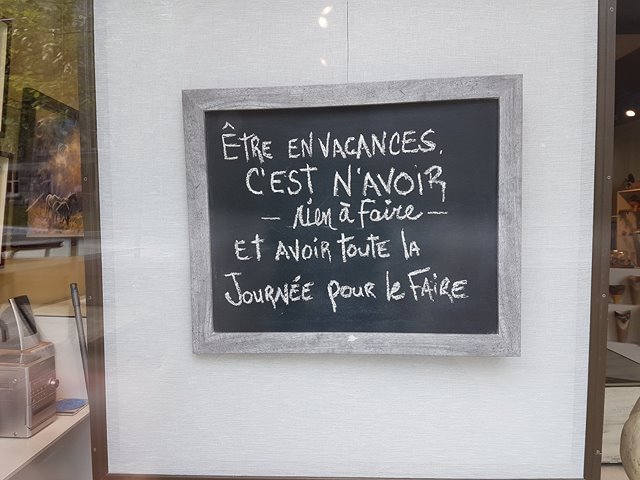 ÊTRE EN VACANCES.
C'EST N'AVOIR
— rien à faire —
ET AVOIR TOUTE LA
JOURNÉE POUR le FAIRE